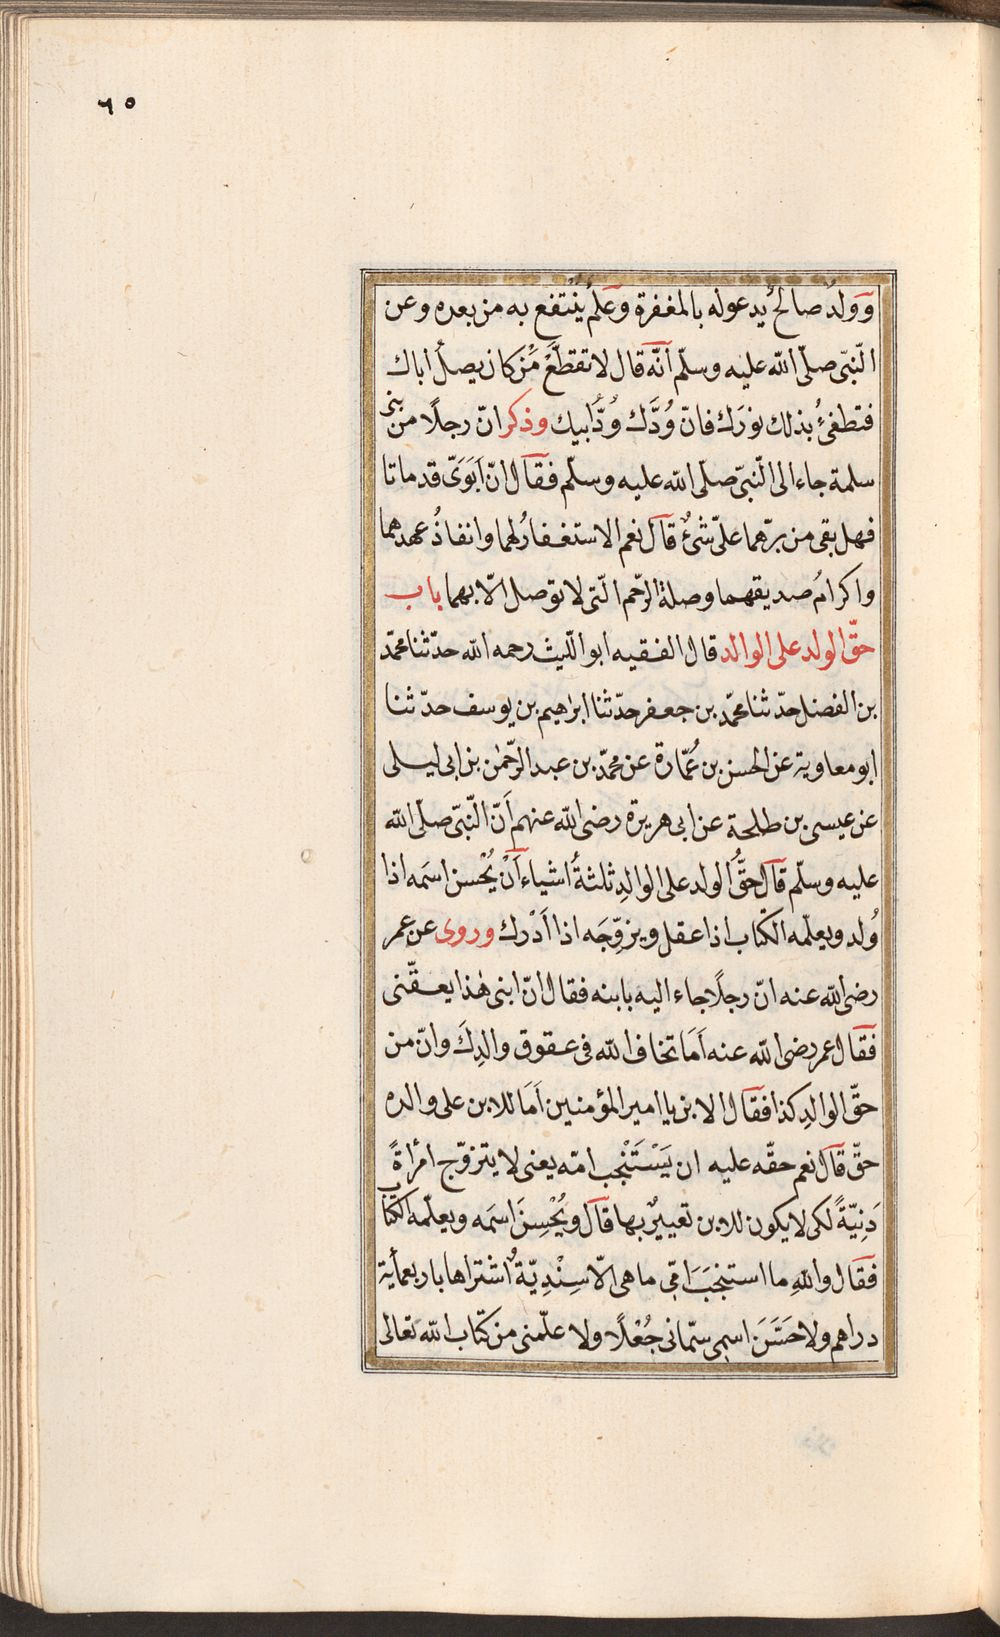 ٦٥
وَوَلدٌ صالحٌ يدعوله بالمغفرة وعَلمٌ يُنْتَفع به من بعده وعن
النّبىّ صلّى الله عليه وسلّم انّه قال لا تقطَعْ مَنْ كان يصل اباك
فتطفئُ بذلك نورَك فانّ وُدَّك وُدُّ ابيك وذكر انّ رجلًا من بنى
سلمة جاء الى النّبىّ صلّى الله عليه وسلّم فقال انّ اَبَوَىّ قد ماتا
فهل بقى من برّهما علىّ شئٌ قال نعم الاستغفارُ لهما وانفاذُ عهدهما
واكرامُ صديقهما وصلة الرّحم الّتى لا توصل الّا بهما باب
حقّ الولد على الوالد قال الفقيه ابو اللّيث رحمه الله حدّثنا محمّد
بن الفضل حدّثنا محمّد بن جعفر حدّثنا ابرٰهيم بن يوسف حدّثنا
ابو معاوية عن الحسن بن عُمّارة عن محمّد بن عبد الرّحمٰن بن ابى ليلى
عن عيسى بن طلحة عن ابى هريرة رضى الله عنهم اَنّ النّبىّ صلّى الله
عليه وسلّم قال حقُّ الولد على الوالدِ ثلثةُ اشياء اَنْ يُحْسن اسمَه اذا
وُلد ويعلّمه الكتاب اذا عقل ويزوِّجَه اذا اَدْرك وروى عن عمر
رضى الله عنه انّ رجلًا جاء اليه بابنه فقال انّ ابنى هٰذا يعقّنى
فقال عمر رضى الله عنه اَمَا تخاف الله فى عقوق والدِكَ وانّ من
حقّ الوالدِ كذا فقال الابن يا امير المؤمنين اَمَا للابن على والده
حقّ قال نعم حقّه عليه ان يَسْتَنْجب امّه يعنى لا يتزوّج امْرأةً
دَنِيّةً لكى لا يكون للابن تعييرٌ بها قال ويُحْسِنَ اسمَه ويعلّمه الكتاب
فقال واللهِ ما استنجَبَ امّى ما هى الّا سِنْدِيّةٌ اشتراها باربعمأية
دراهم ولا حَسَّنَ اسمى سمّانى جُعْلًا ولا علّمنى من كتاب الله تعالى